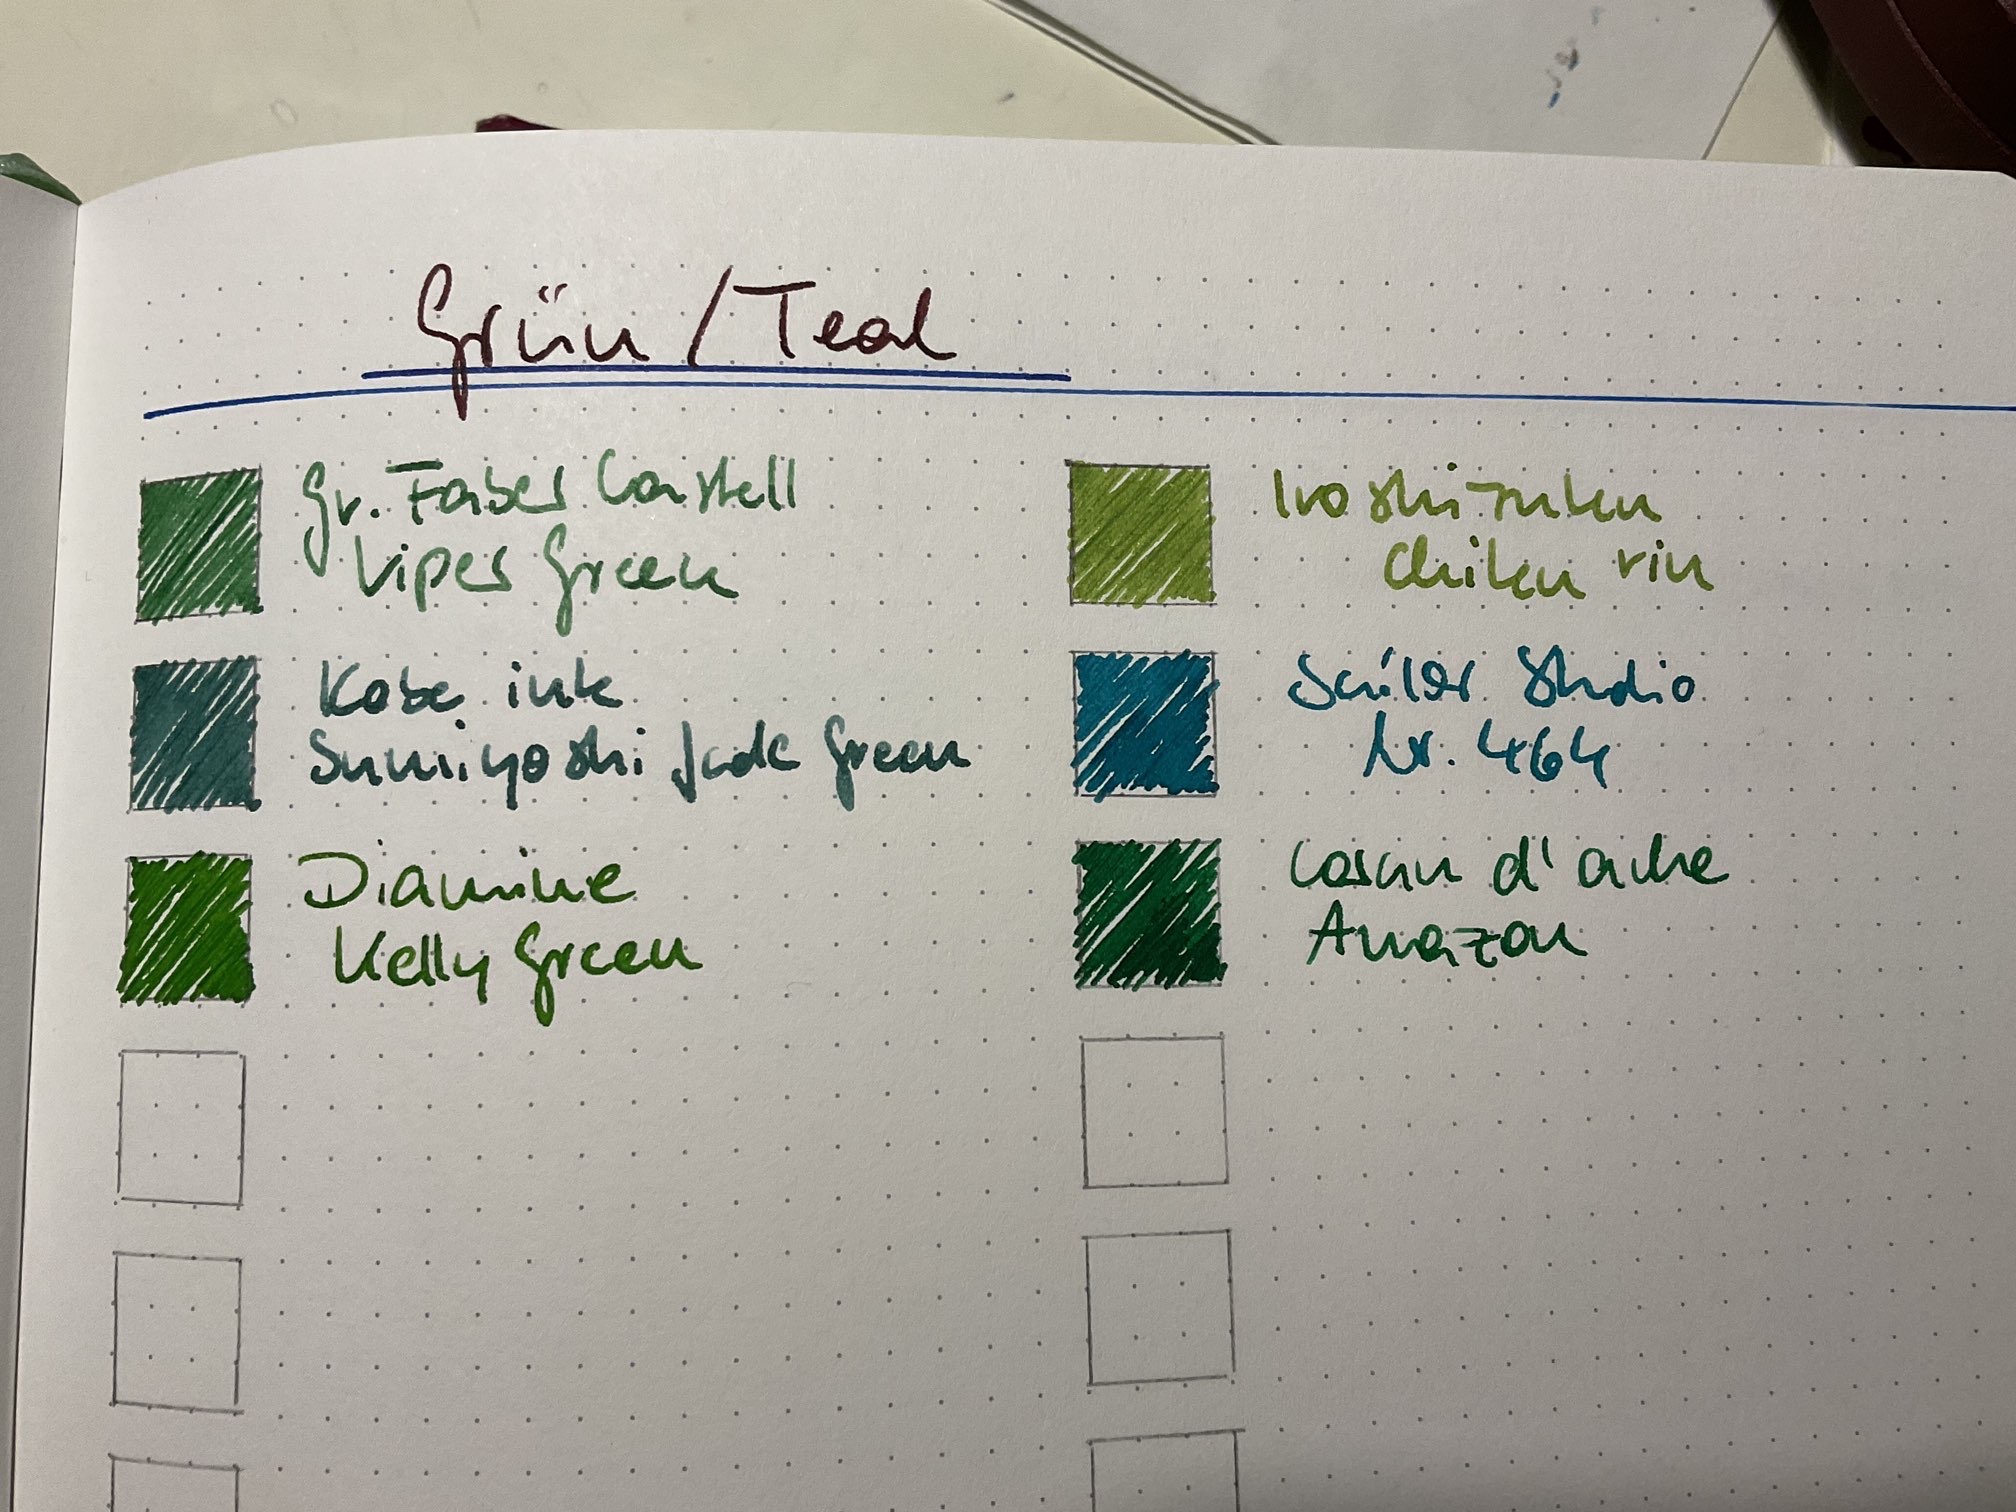 Grün/Teal
Gr. Faber Castell
Viper Green
Kobe ink
Sumiyoshi Jade Green
Diamine
Kelly Green
Iroshizuku
Chiku rin
Sailor Studio
Nr. 464
Caran d'ache
Amazon